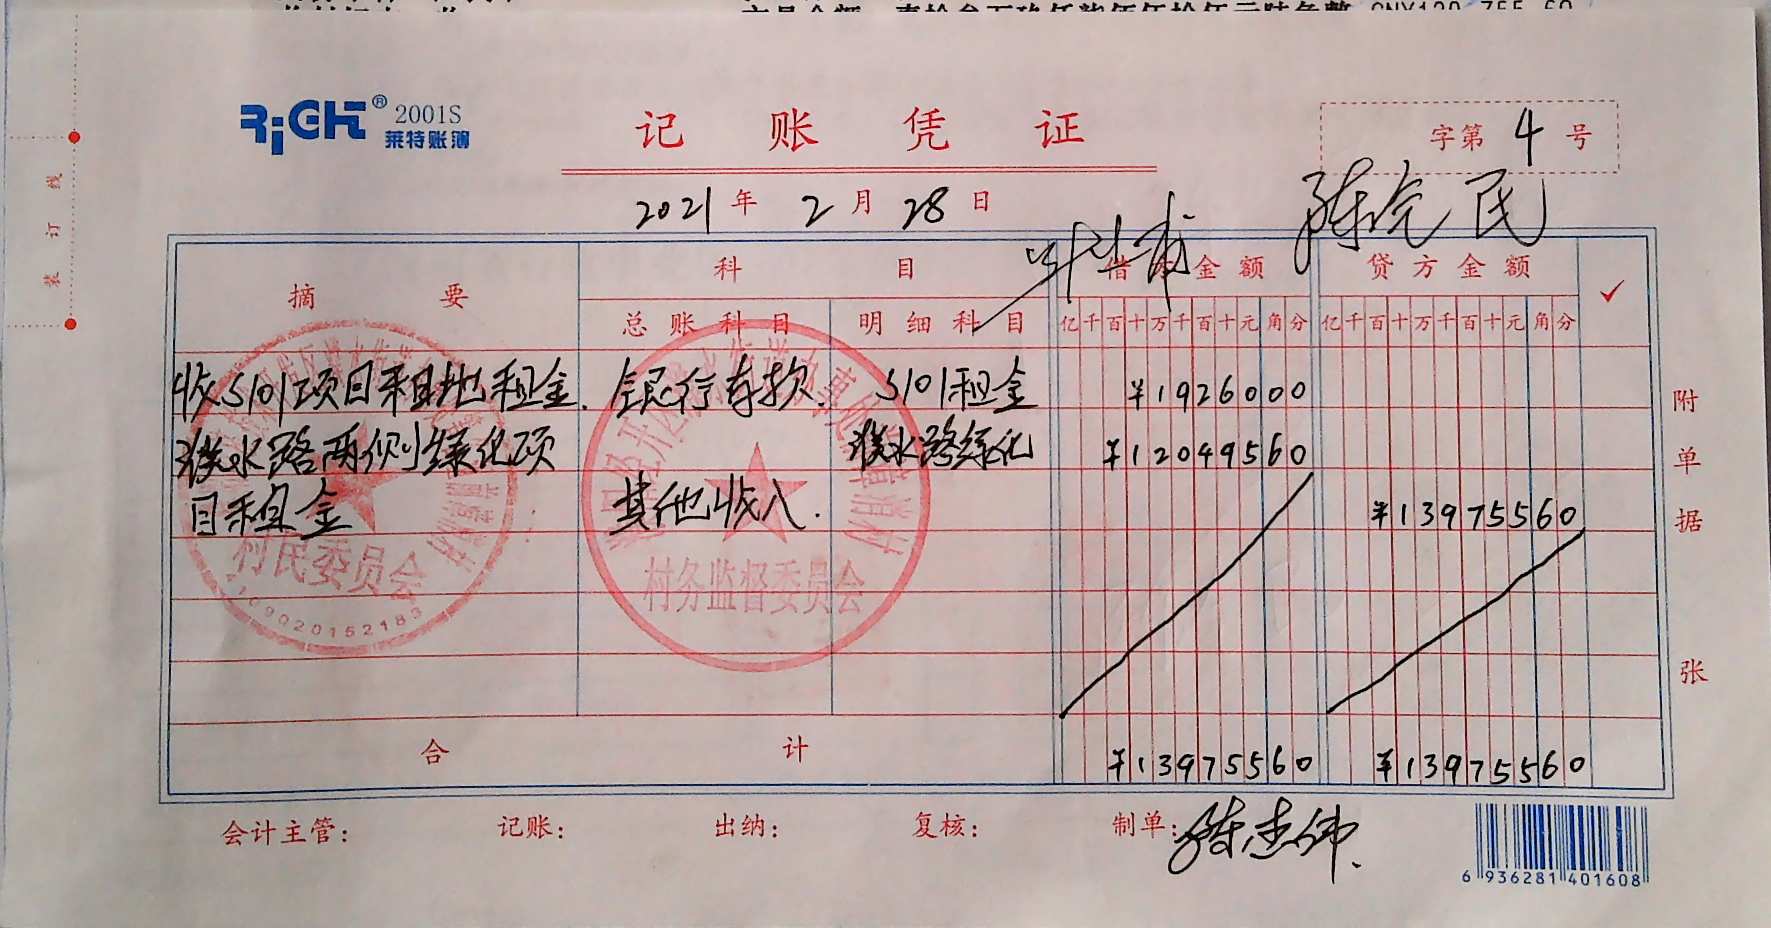 RiGHT® 2001S
莱特账簿
记账凭证
字第 4 号
2021 年 2 月 28 日
陈完民
摘要 科目 借方金额 贷方金额 ✓
总账科目 明细科目 亿千百十万千百十元角分 亿千百十万千百十元角分
收S101项目租地租金. 银行存款. S101租金 ¥1926000
濮水路两侧绿化项 濮水路绿化 ¥12049560
目租金 其他收入. ¥13975560
村民委员会
村务监督委员会
合计 ¥13975560 ¥13975560
会计主管: 记账: 出纳: 复核: 制单:
附单据 张
装订线
6 936281 401608